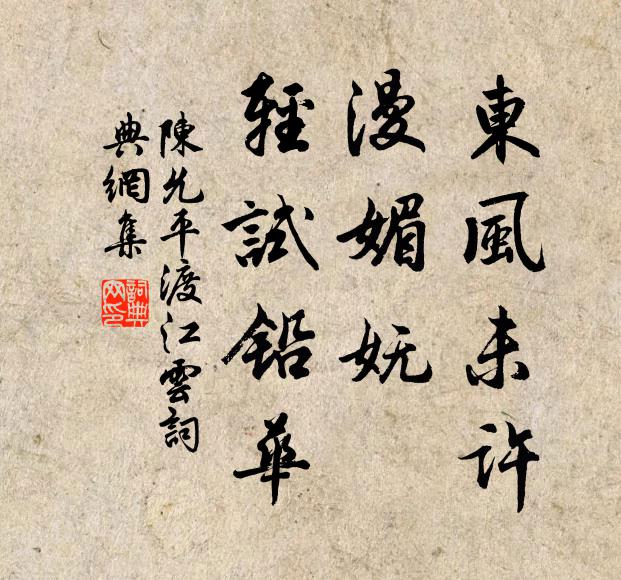 東風未許
漫媚妩
輕試鉛華
陳允平渡江雲詞
典網集
詞典网印